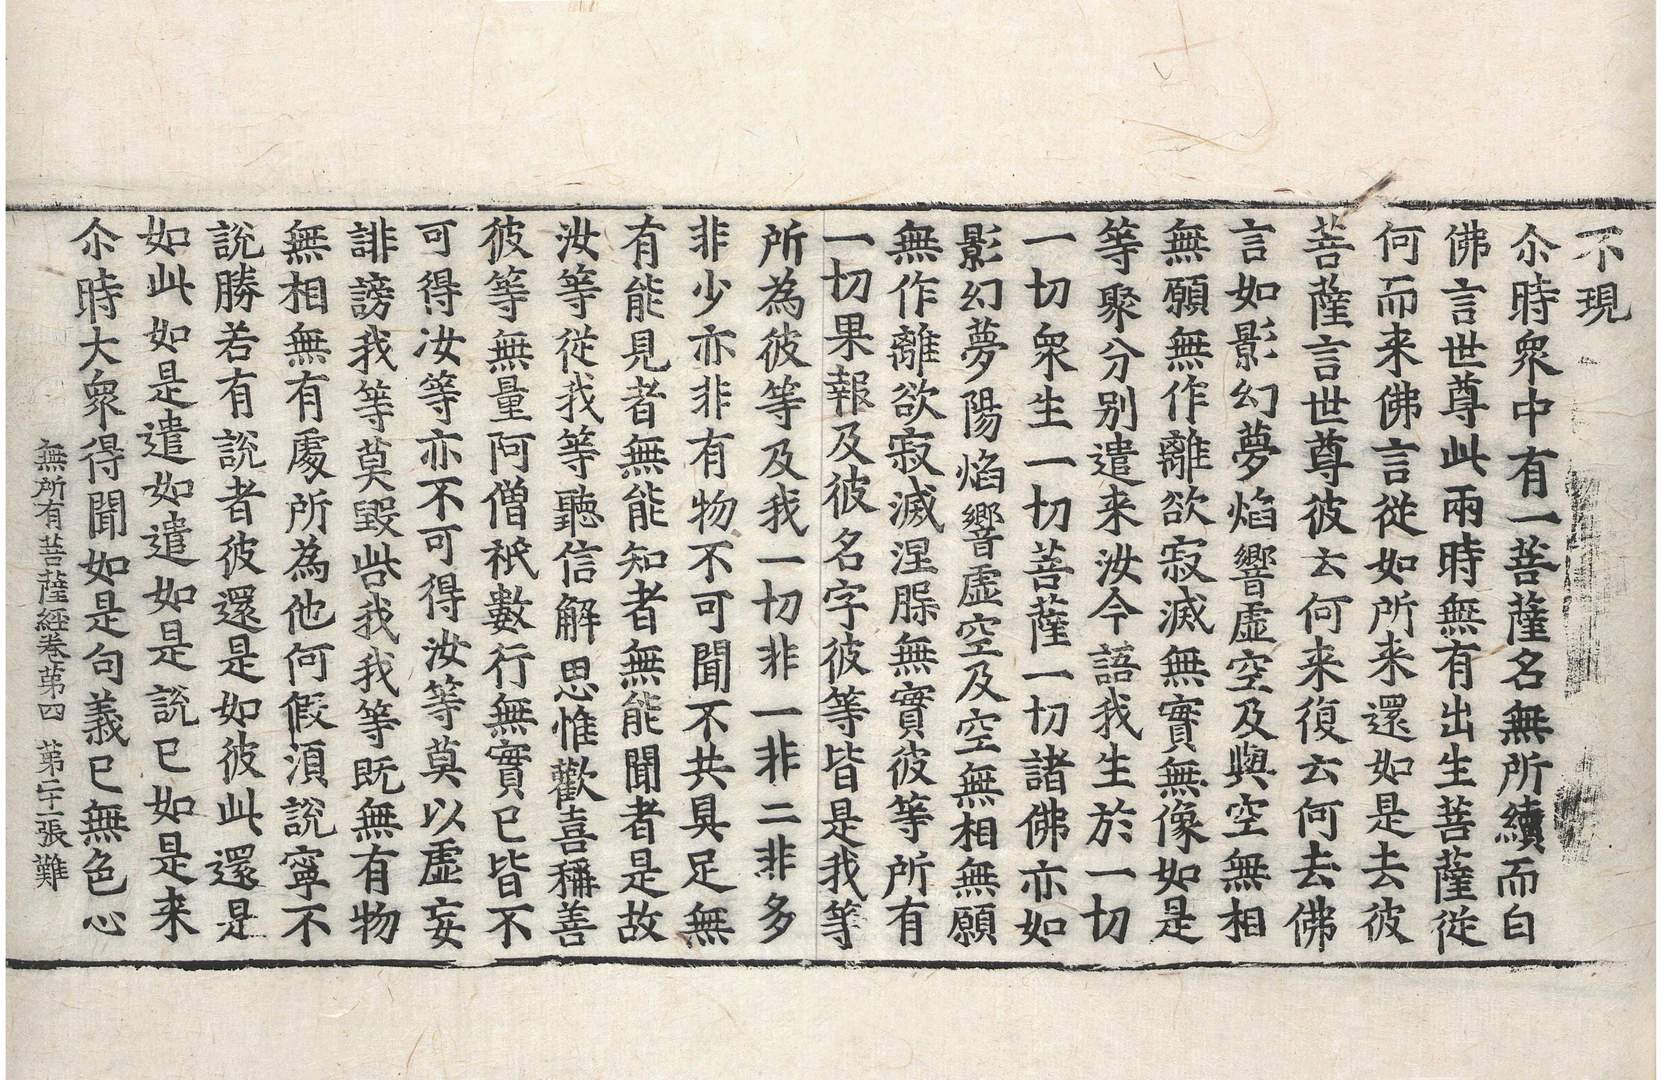 不現
尒時衆中有一菩薩名無所續而白
佛言世尊此兩時無有出生菩薩從
何而来佛言從如所来還如是去彼
菩薩言世尊彼云何来復云何去佛
言如影幻夢焰響虛空及與空無相
無願無作離欲寂滅無實無像如是
等聚分別遣来汝今語我生於一切
一切衆生一切菩薩一切諸佛亦如
影幻夢陽焰響虛空及空無相無願
無作離欲寂滅涅槃無實彼等所有
一切果報及彼名字彼等皆是我等
所為彼等及我一切非一非二非多
非少亦非有物不可聞不共具足無
有能見者無能知者無能聞者是故
汝等從我等聽信解思惟歡喜稱善
彼等無量阿僧祇數行無實已皆不
可得汝等亦不可得汝等莫以虛妄
誹謗我等莫毀呰我我等既無有物
無相無有處所為他何假湏說寧不
說勝若有說者彼還是如彼此還是
如此如是遣如遣如是說已如是来
尒時大衆得聞如是句義已無色心
無所有菩薩經卷第四 第二十一張 難